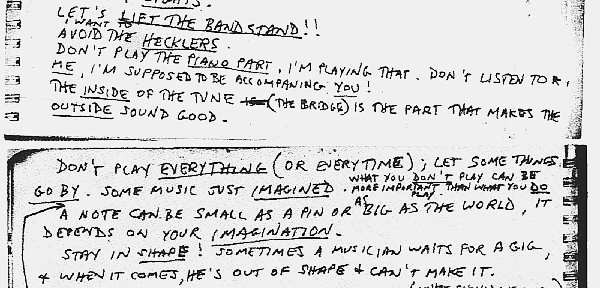 LIGHTS.
LET'S LIFT THE BANDSTAND!!
I WANT TO
AVOID THE HECKLERS.
DON'T PLAY THE PIANO PART, I'M PLAYING THAT. DON'T LISTEN TO
ME, I'M SUPPOSED TO BE ACCOMPANYING YOU!
THE INSIDE OF THE TUNE (THE BRIDGE) IS THE PART THAT MAKES THE
OUTSIDE SOUND GOOD.
DON'T PLAY EVERYTHING (OR EVERYTIME); LET SOME THINGS
GO BY. SOME MUSIC JUST IMAGINED. WHAT YOU DON'T PLAY CAN BE
MORE IMPORTANT THAN WHAT YOU DO
PLAY.
A NOTE CAN BE SMALL AS A PIN OR AS BIG AS THE WORLD, IT
DEPENDS ON YOUR IMAGINATION.
STAY IN SHAPE! SOMETIMES A MUSICIAN WAITS FOR A GIG,
& WHEN IT COMES, HE'S OUT OF SHAPE & CAN'T MAKE IT.